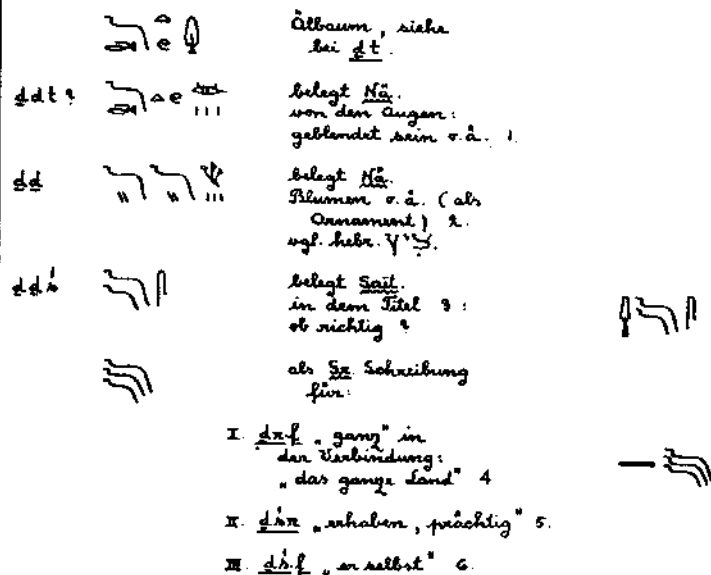 Ölbaum, siehe
bei ḏt.
ḏdt ? belegt Nä.
von den Augen:
geblendet sein o.ä. 1.
ḏḏ belegt Nä.
Blumen o.ä. (als
Ornament) 2.
vgl. hebr. ציץ.
ḏḏś belegt Sait.
in dem Titel 3 :
ob richtig ?
als Gr. Schreibung
für:
I. ḏr.f „ganz" in
der Verbindung:
„das ganze Land" 4
II. ḏśr „erhaben, prächtig" 5.
III. ḏś.f „er selbst" 6.